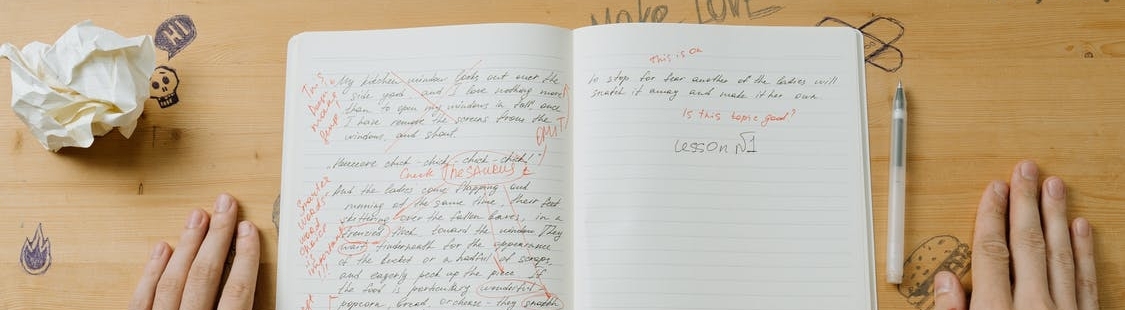 HI
Make LOVE
My kitchen window looks out over the
side yard and I love nothing more
than to open my windows in fall once
I have remove the screens from the
windows, and shout.
OMIT!
chick-chick-chick-chick!
Check Thesaurus
And the ladies come flapping and
running at the same time their feet
skittering over the fallen leaves, in a
frenzied flock toward the window They
wait underneath for the appearance
of the bucket or a hadful of scraps
and eagerly peck up the piece If
the food is particulary wonderful
popcorn, bread, or cheese - they snatch
smarter
words
word
choice
important!!
this is ok
to stop for fear another of the ladies will
snatch it away and make it her own.
Is this topic good?
Lesson №1